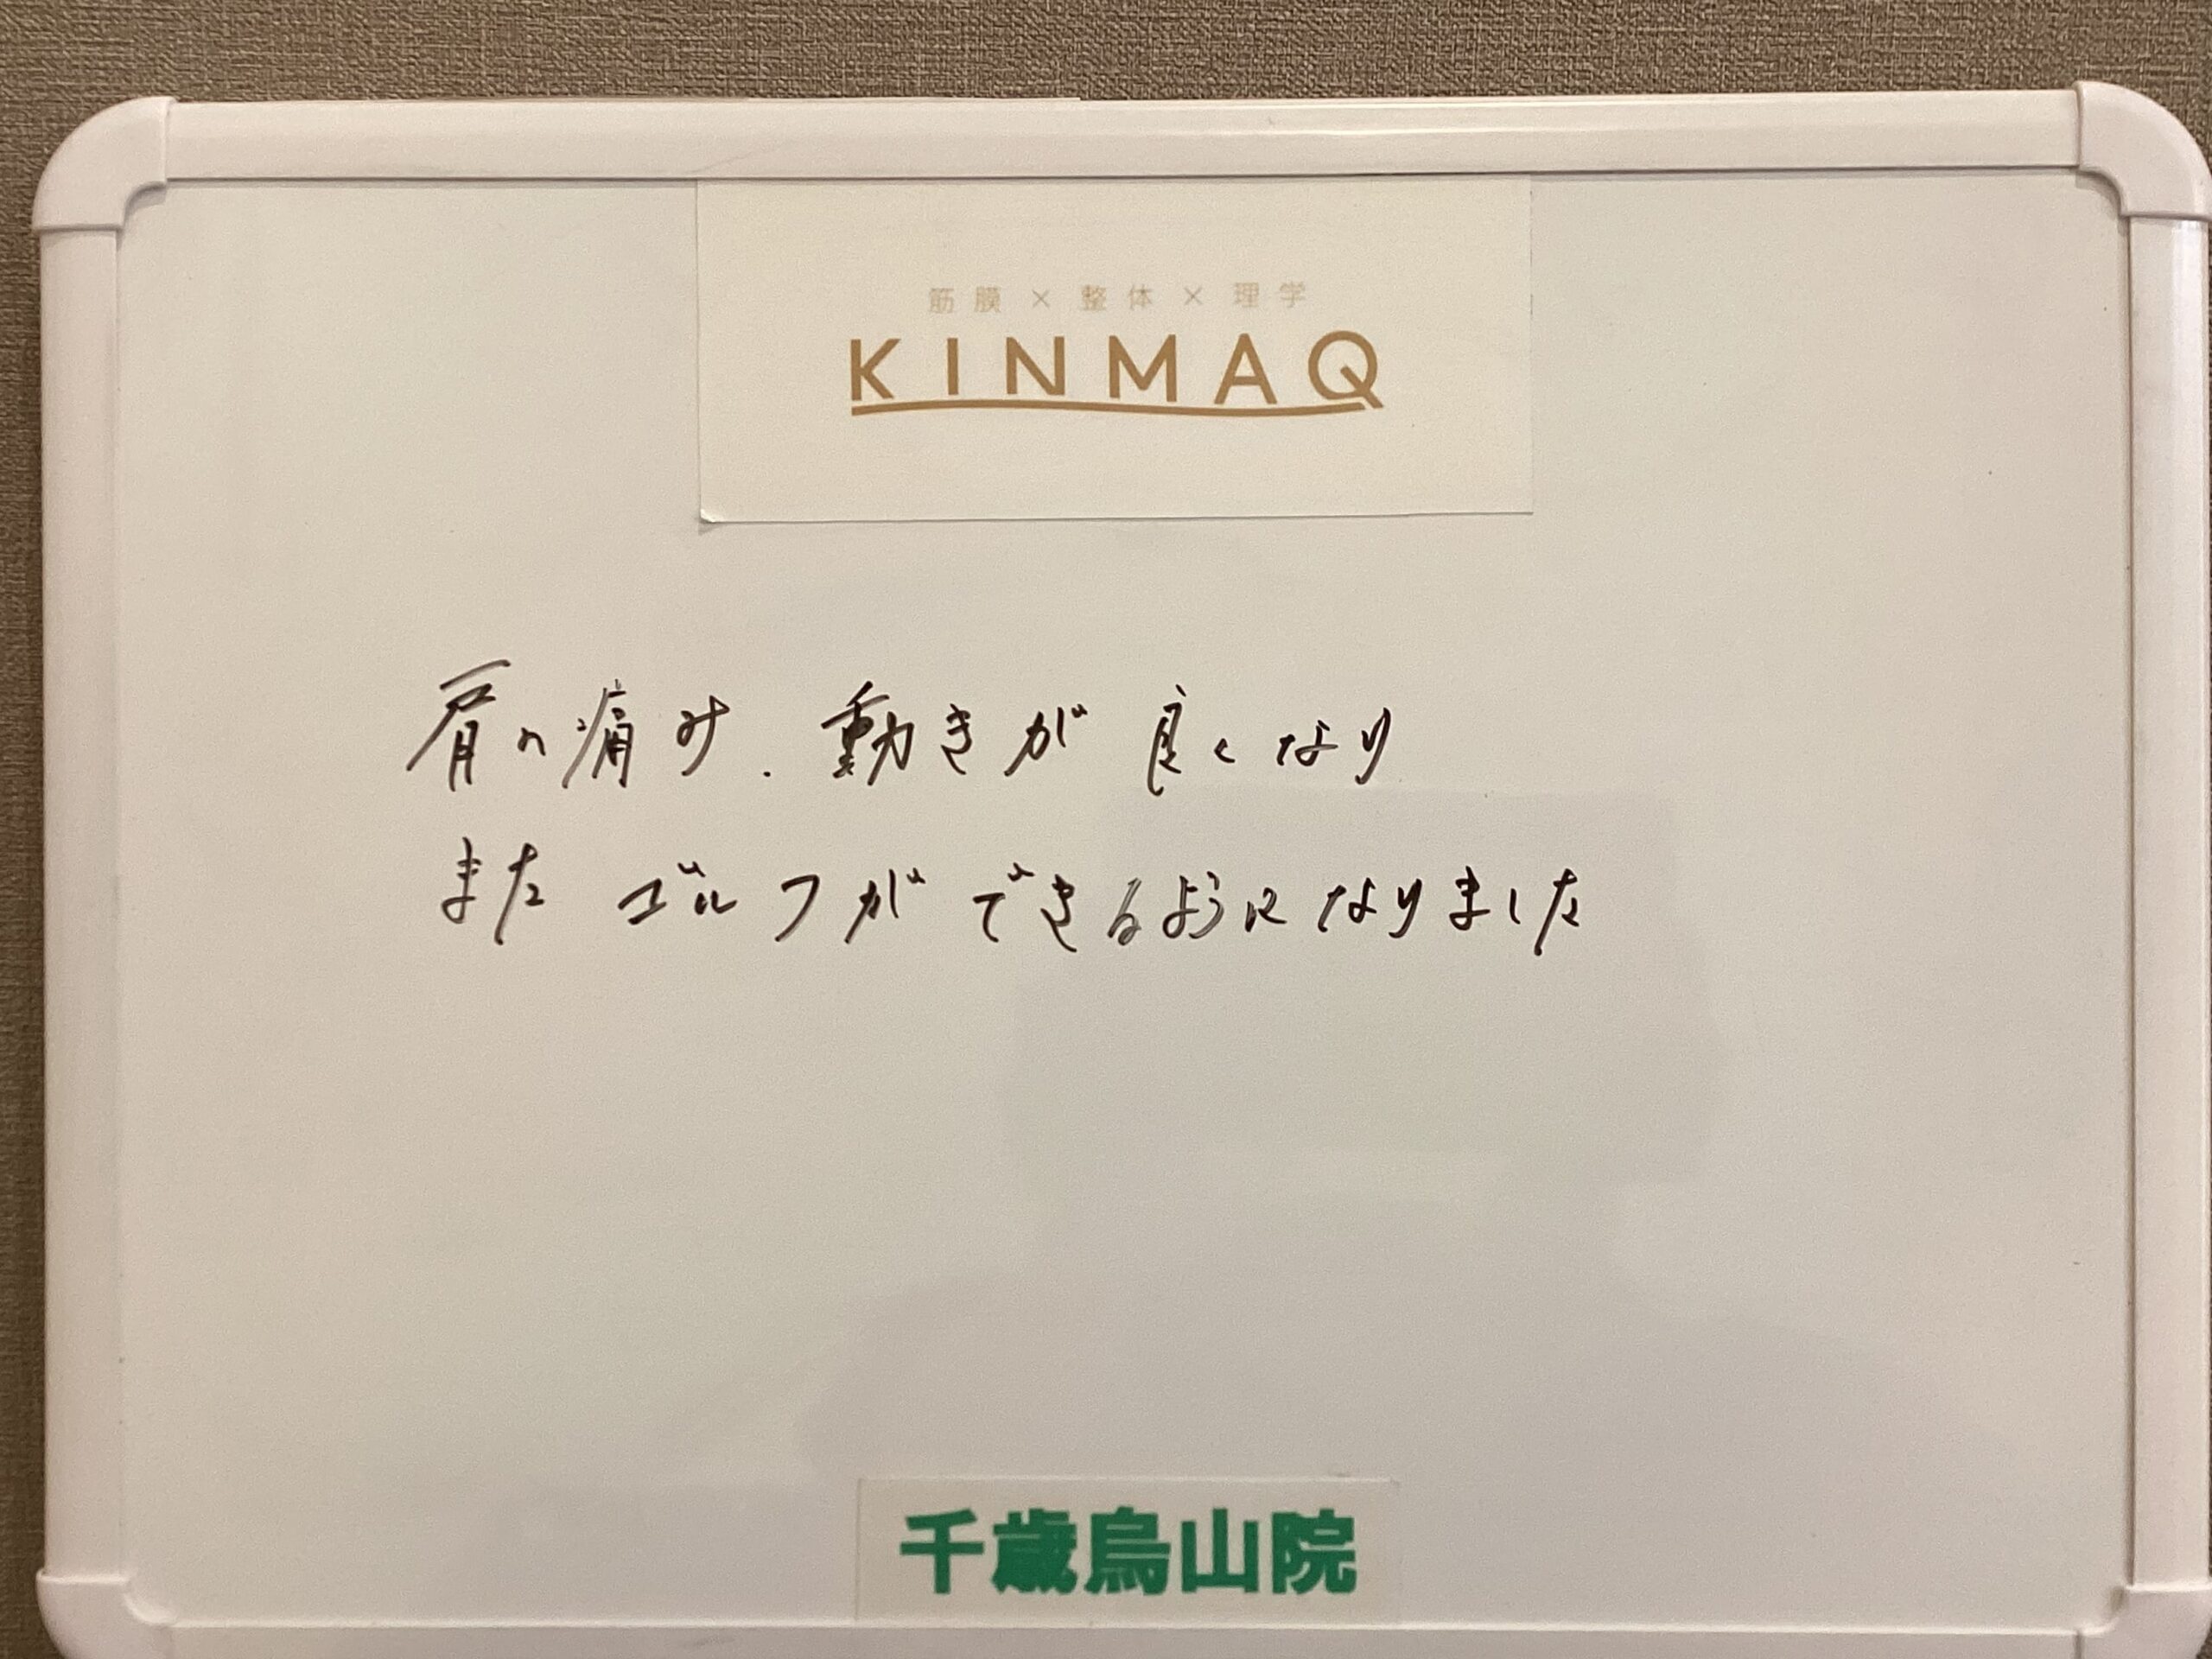 筋膜×整体×理学
KINMAQ
肩の痛み、動きが良くなり
また ゴルフができるようになりました
千歳烏山院